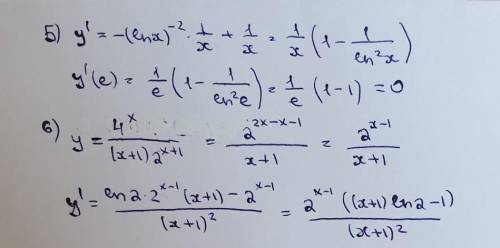 5) y' = -(ln x)^{-2} · 1/x + 1/x = 1/x (1 - 1/ln²x)
y'(e) = 1/e (1 - 1/ln²e) = 1/e (1-1) = 0
6) y = 4^x / ((x+1) 2^{x+1}) = 2^{2x-x-1} / (x+1) = 2^{x-1} / (x+1)
y' = (ln2 · 2^{x-1} (x+1) - 2^{x-1}) / (x+1)² = 2^{x-1} ((x+1) ln2 - 1) / (x+1)²